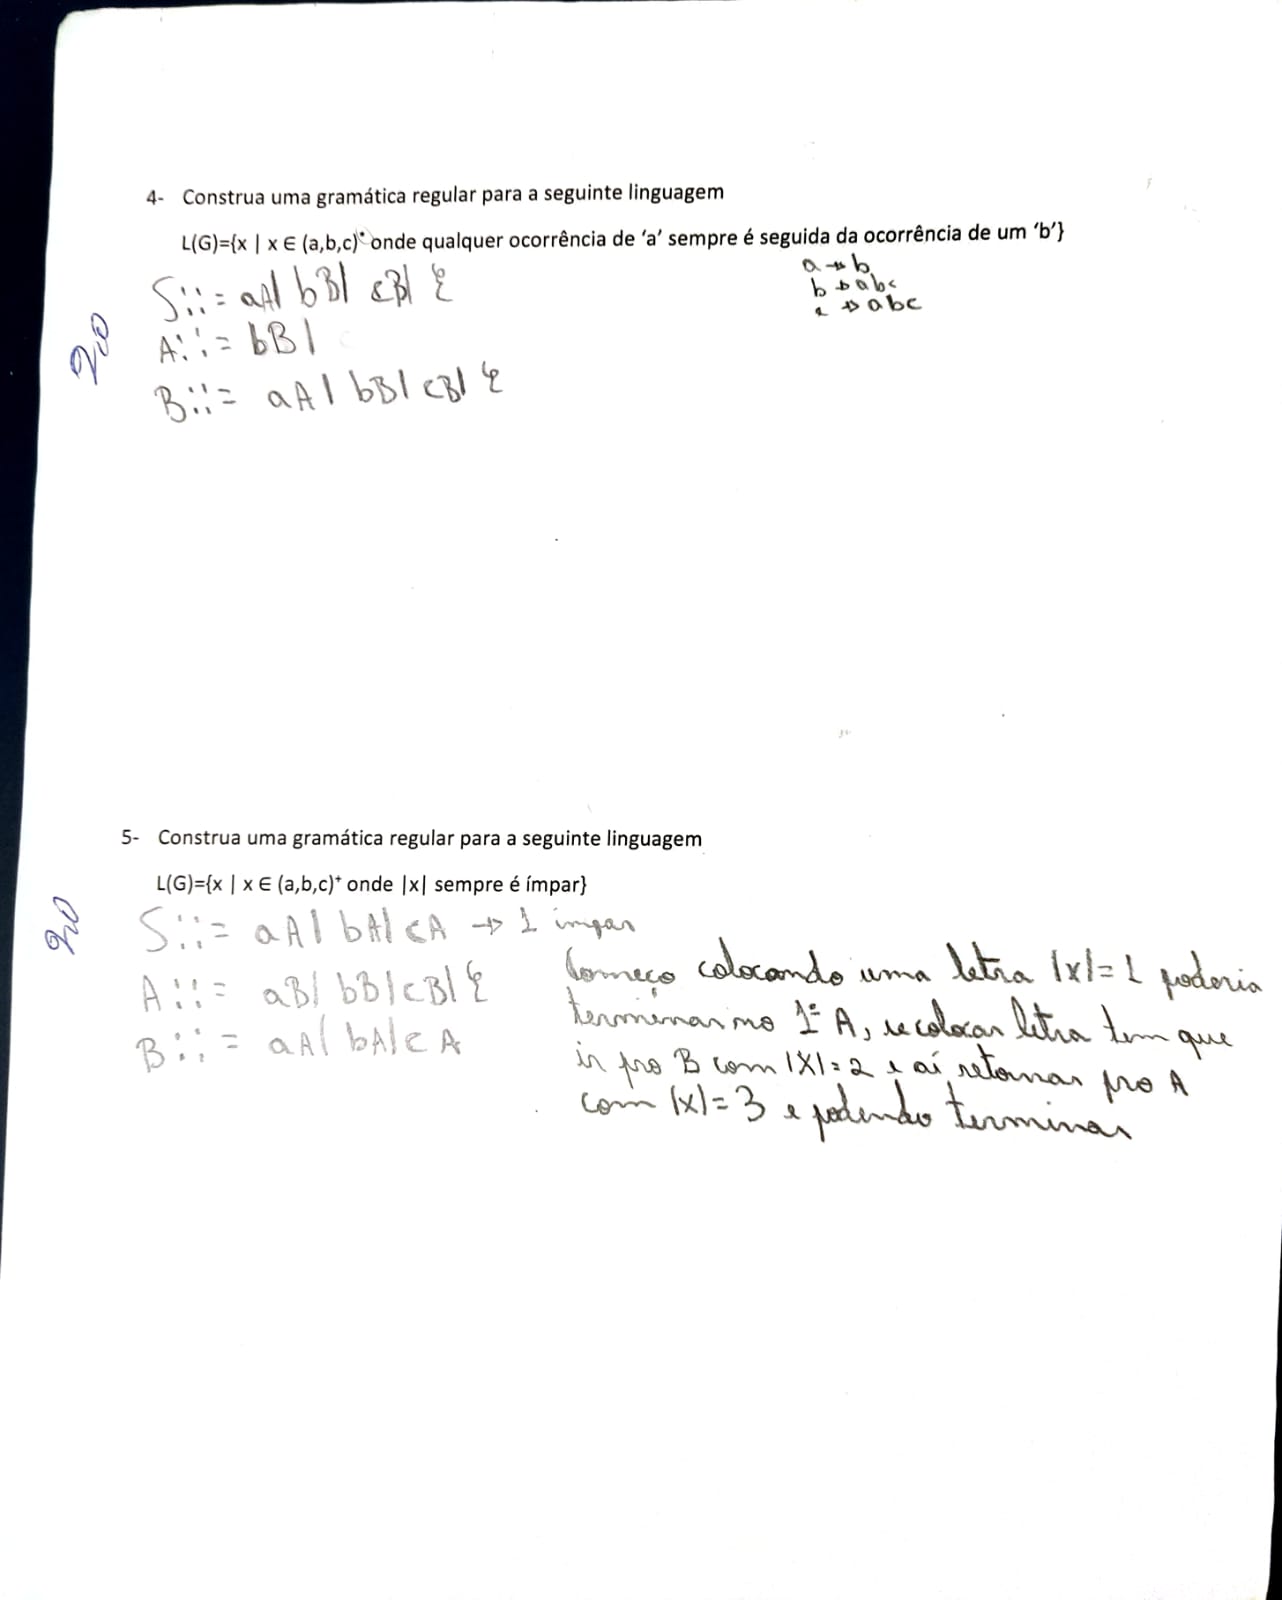 4- Construa uma gramática regular para a seguinte linguagem
L(G)={x | x ∈ (a,b,c)* onde qualquer ocorrência de 'a' sempre é seguida da ocorrência de um 'b'}
a → b
b → abc
c → abc
S::= aA| bB| cB| ε
A::= bB|
B::= aA| bB| cB| ε
2,0
5- Construa uma gramática regular para a seguinte linguagem
L(G)={x | x ∈ (a,b,c)⁺ onde |x| sempre é ímpar}
2,0
S::= aA| bA| cA → 1 impar
A::= aB| bB| cB| ε
B::= aA| bA| cA
Começo colocando uma letra |x|=1 poderia
terminar no 1º A, se colocar letra tem que
ir pro B com |X|=2 e aí retornar pro A
com |x|=3 e podendo terminar